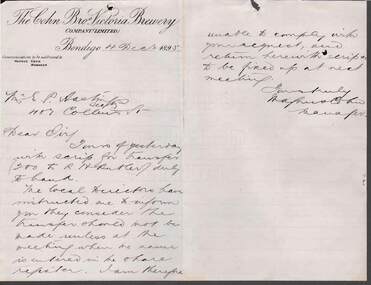 The Cohn Bros Victoria Brewery
COMPANY LIMITED
Bendigo 4 Dec 1895
Mr E. P. Hastings
Secty
407 Collins St
Dear Sir
Yours of yesterday
with scrip for transfer
(200 to R H Butler) duly
to hand.
The local Directors have
instructed me to inform
you they consider the
transfer should not be
made unless at the
meeting when the name
is entered in the share
register. I am therefore
unable to comply with
your request, and
return herewith scrip
to be passed up at next
meeting.
Yours truly
Magnus Cohn
Manager